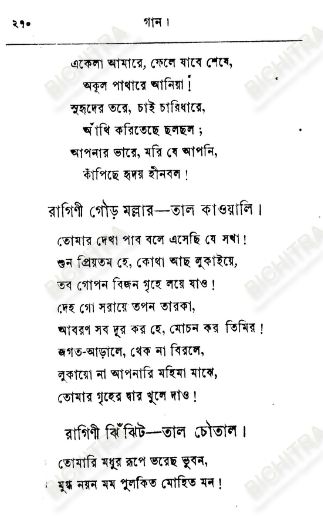 ২৭০ গান।
একেলা আমারে, ফেলে যাবে শেষে,
অকূল পাথারে আনিয়া!
সুহৃদের তরে, চাই চারিধারে,
আঁথি করিতেছে ছলছল;
আপনার ভারে, মরি যে আপনি,
কাঁপিছে হৃদয় হীনবল!
রাগিণী গৌড় মল্লার—তাল কাওয়ালি।
তোমার দেখা পাব বলে এসেছি যে সখা!
শুন প্রিয়তম হে, কোথা আছ লুকাইয়ে,
তব গোপন বিজন গৃহে লয়ে যাও!
দেহ গো সরায়ে তপন তারকা,
আবরণ সব দূর কর হে, মোচন কর তিমির!
জগত-আড়ালে, থেক না বিরলে,
লুকায়ো না আপনারি মহিমা মাঝে,
তোমার গৃহের দ্বার খুলে দাও!
রাগিণী ঝিঁঝিট—তাল চৌতাল।
তোমারি মধুর রূপে ভরেছ ভুবন,
মুগ্ধ নয়ন মম পুলকিত মোহিত মন!
BICHITRA
BICHITRA
BICHITRA
BICHITRA